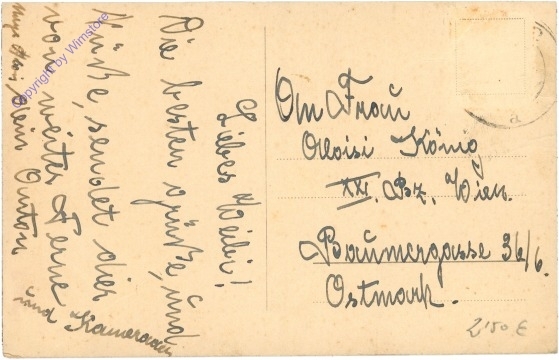 Liebes Weibi!
Die besten Grüße, und
Küße, sendet dir
von weiter Ferne
dein Anton
und Kameraden
An Frau
Aloisi König
XXI. Bz. Wien.
Baumergasse 36/6.
Ostmark.
2'50 €
Copyright by Wimstore
a